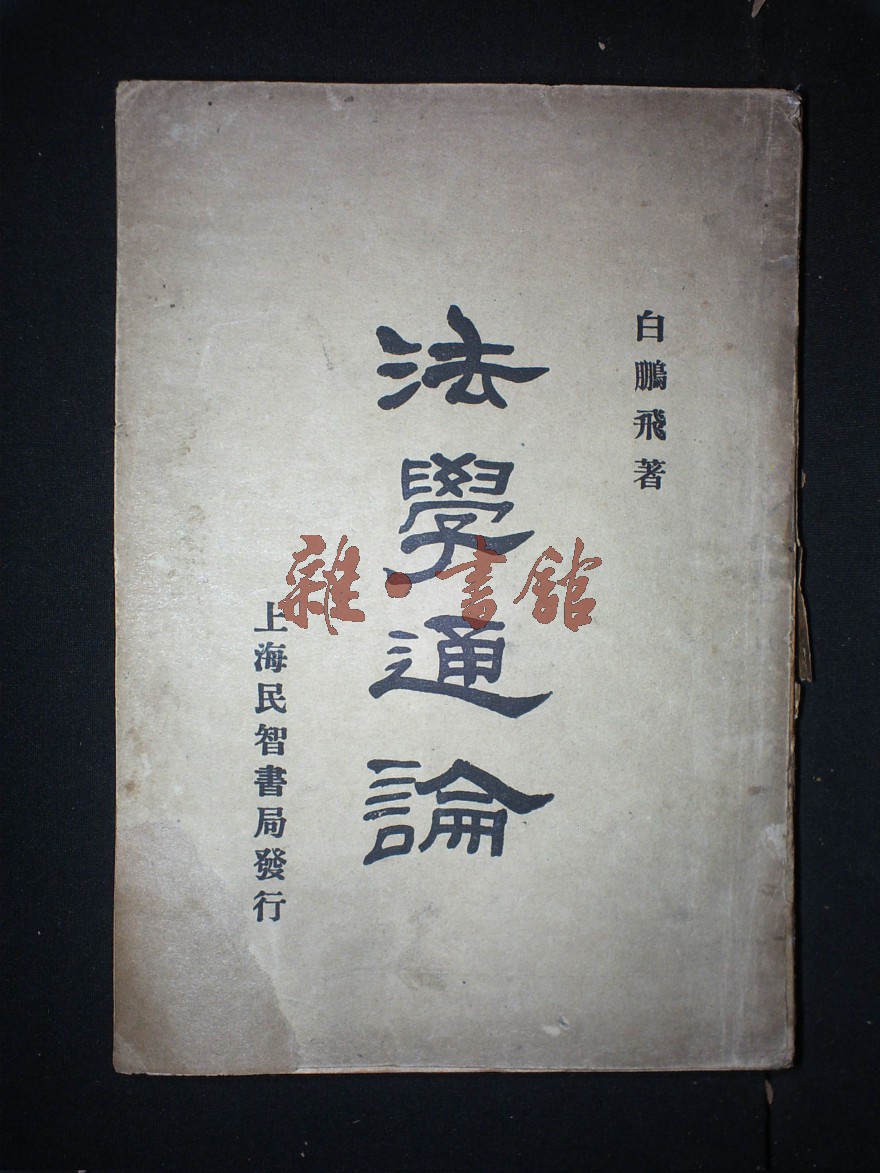 白鵬飛著
法學通論
上海民智書局發行
雜·書館